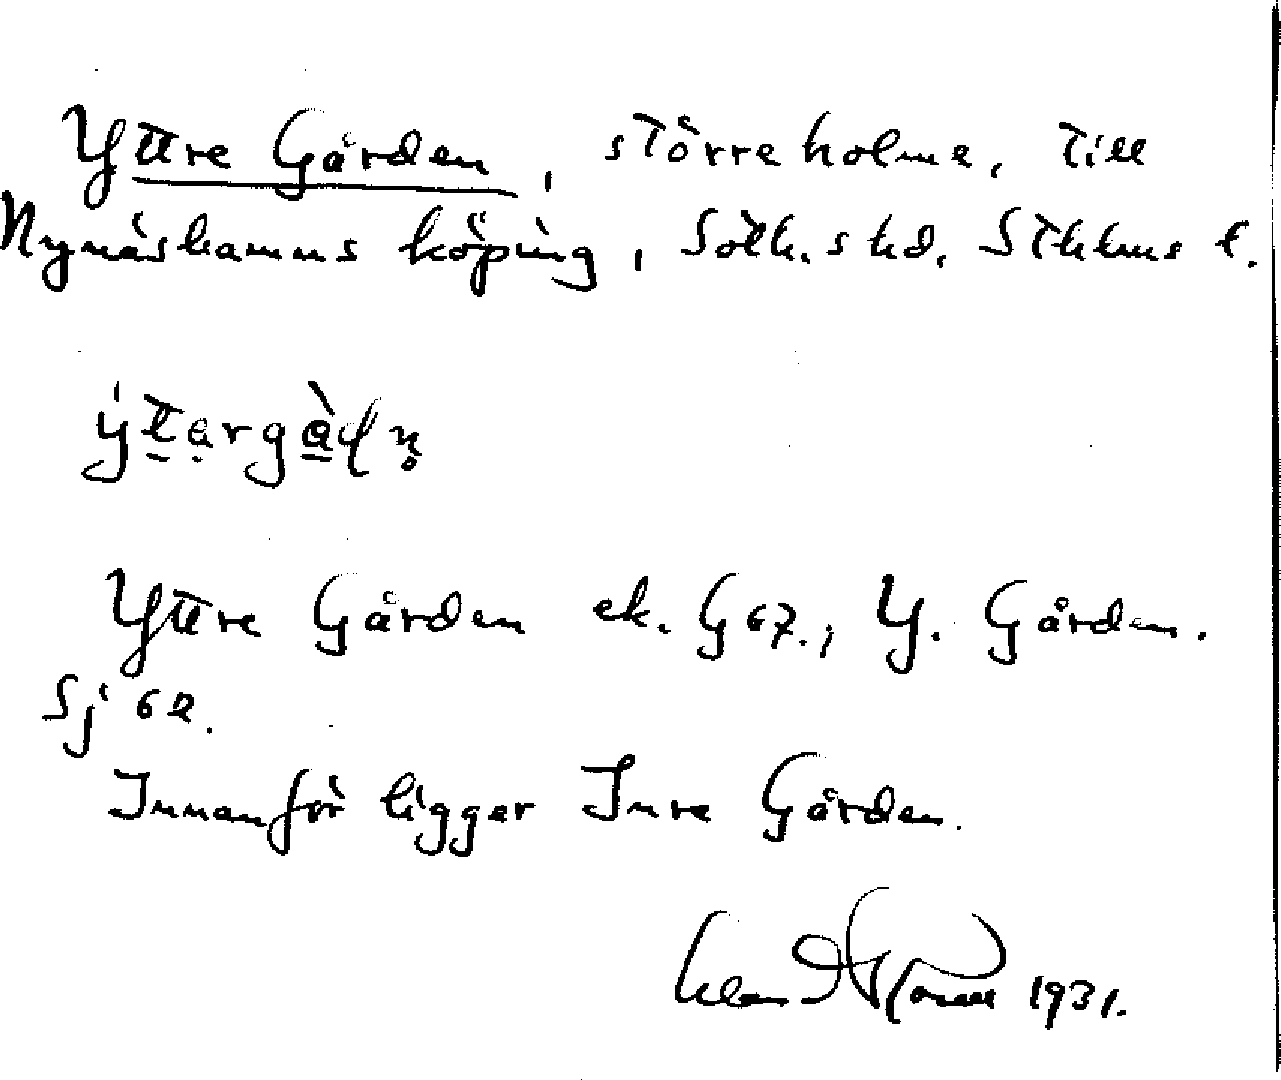 Yttre Gården, större holme, till
Nynäshamns köping, Soth. s hd. Sthlms l.
Yttre Gården ek. G 67., Y. Gården.
Sj 62.
Innanför ligger Inre Gården.
1931.